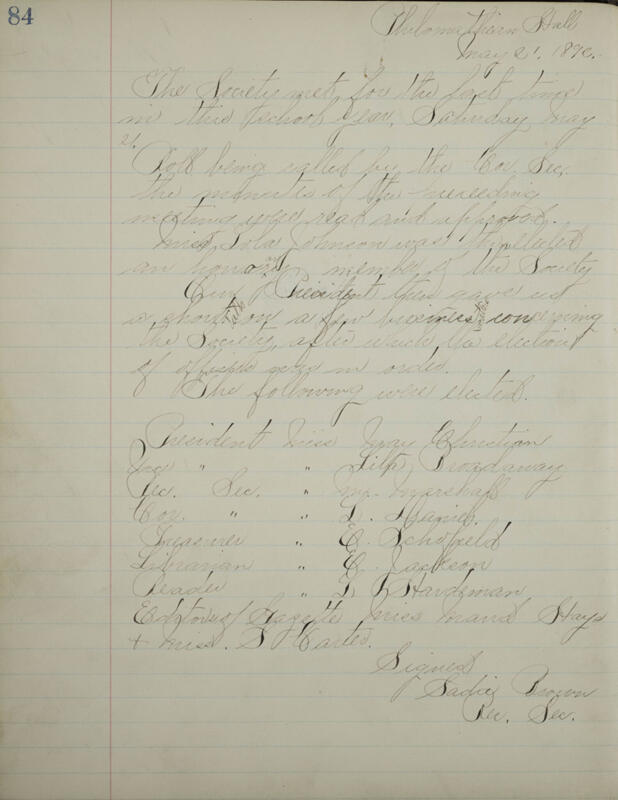 84
Philomathean Hall
May 21, 189
The Society met for the last time
in this school year, Saturday May
21.
Roll being called by the Cor. Sec.
the minutes of the preceeding
meeting were read and approved.
Miss Lola Johnson was then elected
an honorary member of the Society
Our President then gave us
a short talk on a few business matters concerning
the Society, after which the election
of officers were in order.
The following were elected.
President Miss May Christian
Vice " " Broadaway
Rec. Sec. " M. Marshall
Cor. " " L. Haines.
Treasurer " E. Schofield
Librarian " C. Jackson
Reader " L Hardeman
Editors of Gazette Miss Maud Hays
+ Miss. S Carter.
Signed
Sadie Brown
Rec. Sec.